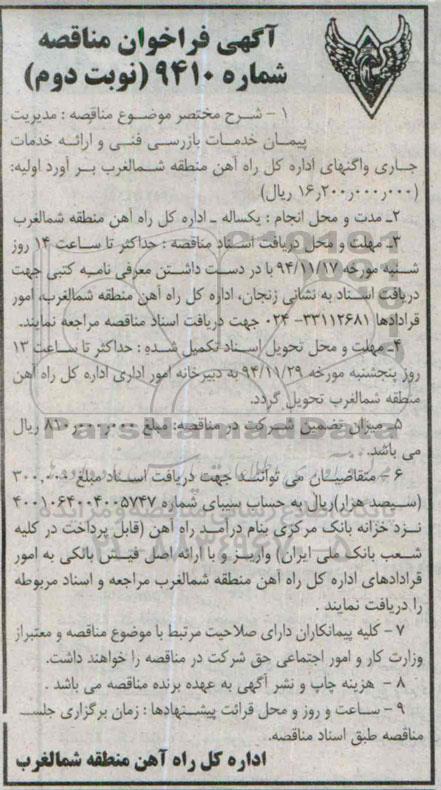 آگهی فراخوان مناقصه
شماره ۹۴۱۰ (نوبت دوم)
۱ – شرح مختصر موضوع مناقصه : مدیریت
پیمان خدمات بازرسی فنی و ارائه خدمات
جاری واگنهای اداره کل راه آهن منطقه شمالغرب بر آورد اولیه:
(۱۶٫۲۰۰٫۰۰۰٫۰۰۰ ریال)
۲ـ مدت و محل انجام : یکساله ـ اداره کل راه آهن منطقه شمالغرب
۳ـ مهلت و محل دریافت اسناد مناقصه : حداکثر تا ساعت ۱۴ روز
شنبه مورخه ۹۴/۱۱/۱۷ با در دست داشتن معرفی نامه کتبی جهت
دریافت اسناد به نشانی زنجان، اداره کل راه آهن منطقه شمالغرب، امور
قرادادها ۳۳۱۱۲۶۸۱– ۰۲۴ جهت دریافت اسناد مناقصه مراجعه نمایند.
۴ـ مهلت و محل تحویل اسناد تکمیل شده : حداکثر تا ساعت ۱۳
روز پنجشنبه مورخه ۹۴/۱۱/۲۹ به دبیرخانه امور اداری اداره کل راه آهن
منطقه شمالغرب تحویل گردد.
۵ـ میزان تضمین شرکت در مناقصه: مبلغ ۸۱۰٫۰۰۰٫۰۰۰ ریال
می باشد.
۶ – متقاضیان می توانند جهت دریافت اسناد مبلغ ۳۰۰٫۰۰۰
(سیصد هزار)ریال به حساب سیبای شماره ۴۰۰۱۰۶۴۰۰۴۰۰۵۷۴۷
نزد خزانه بانک مرکزی بنام درآمد راه آهن (قابل پرداخت در کلیه
شعب بانک ملی ایران) واریز و با ارائه اصل فیش بانکی به امور
قرادادهای اداره کل راه آهن منطقه شمالغرب مراجعه و اسناد مربوطه
را دریافت نمایند .
۷ – کلیه پیمانکاران دارای صلاحیت مرتبط با موضوع مناقصه و معتبراز
وزارت کار و امور اجتماعی حق شرکت در مناقصه را خواهند داشت.
۸ – هزینه چاپ و نشر آگهی به عهده برنده مناقصه می باشد .
۹ – ساعت و روز و محل قرائت پیشنهادها : زمان برگزاری جلسه
مناقصه طبق اسناد مناقصه.
اداره کل راه آهن منطقه شمالغرب
ParsNamadData